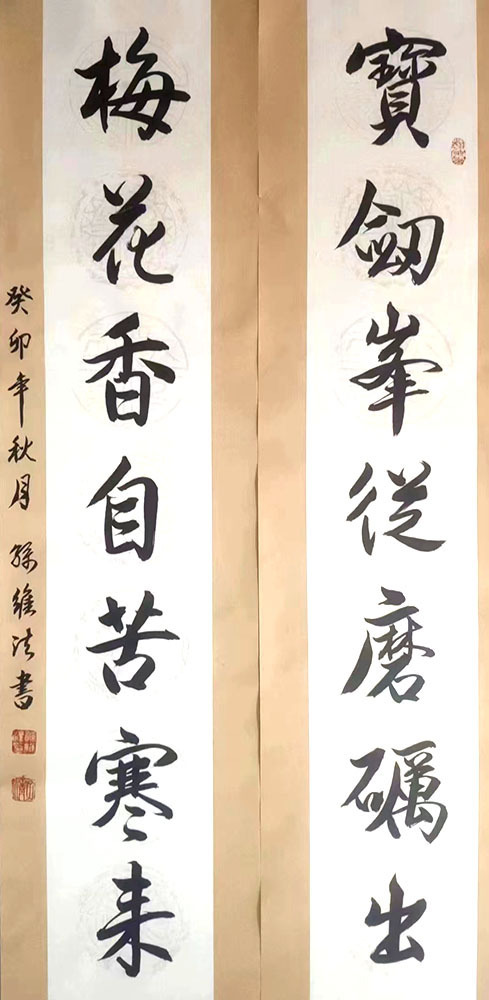 寶劒峯從磨礪出
梅花香自苦寒来
癸卯年秋月 孫維法書